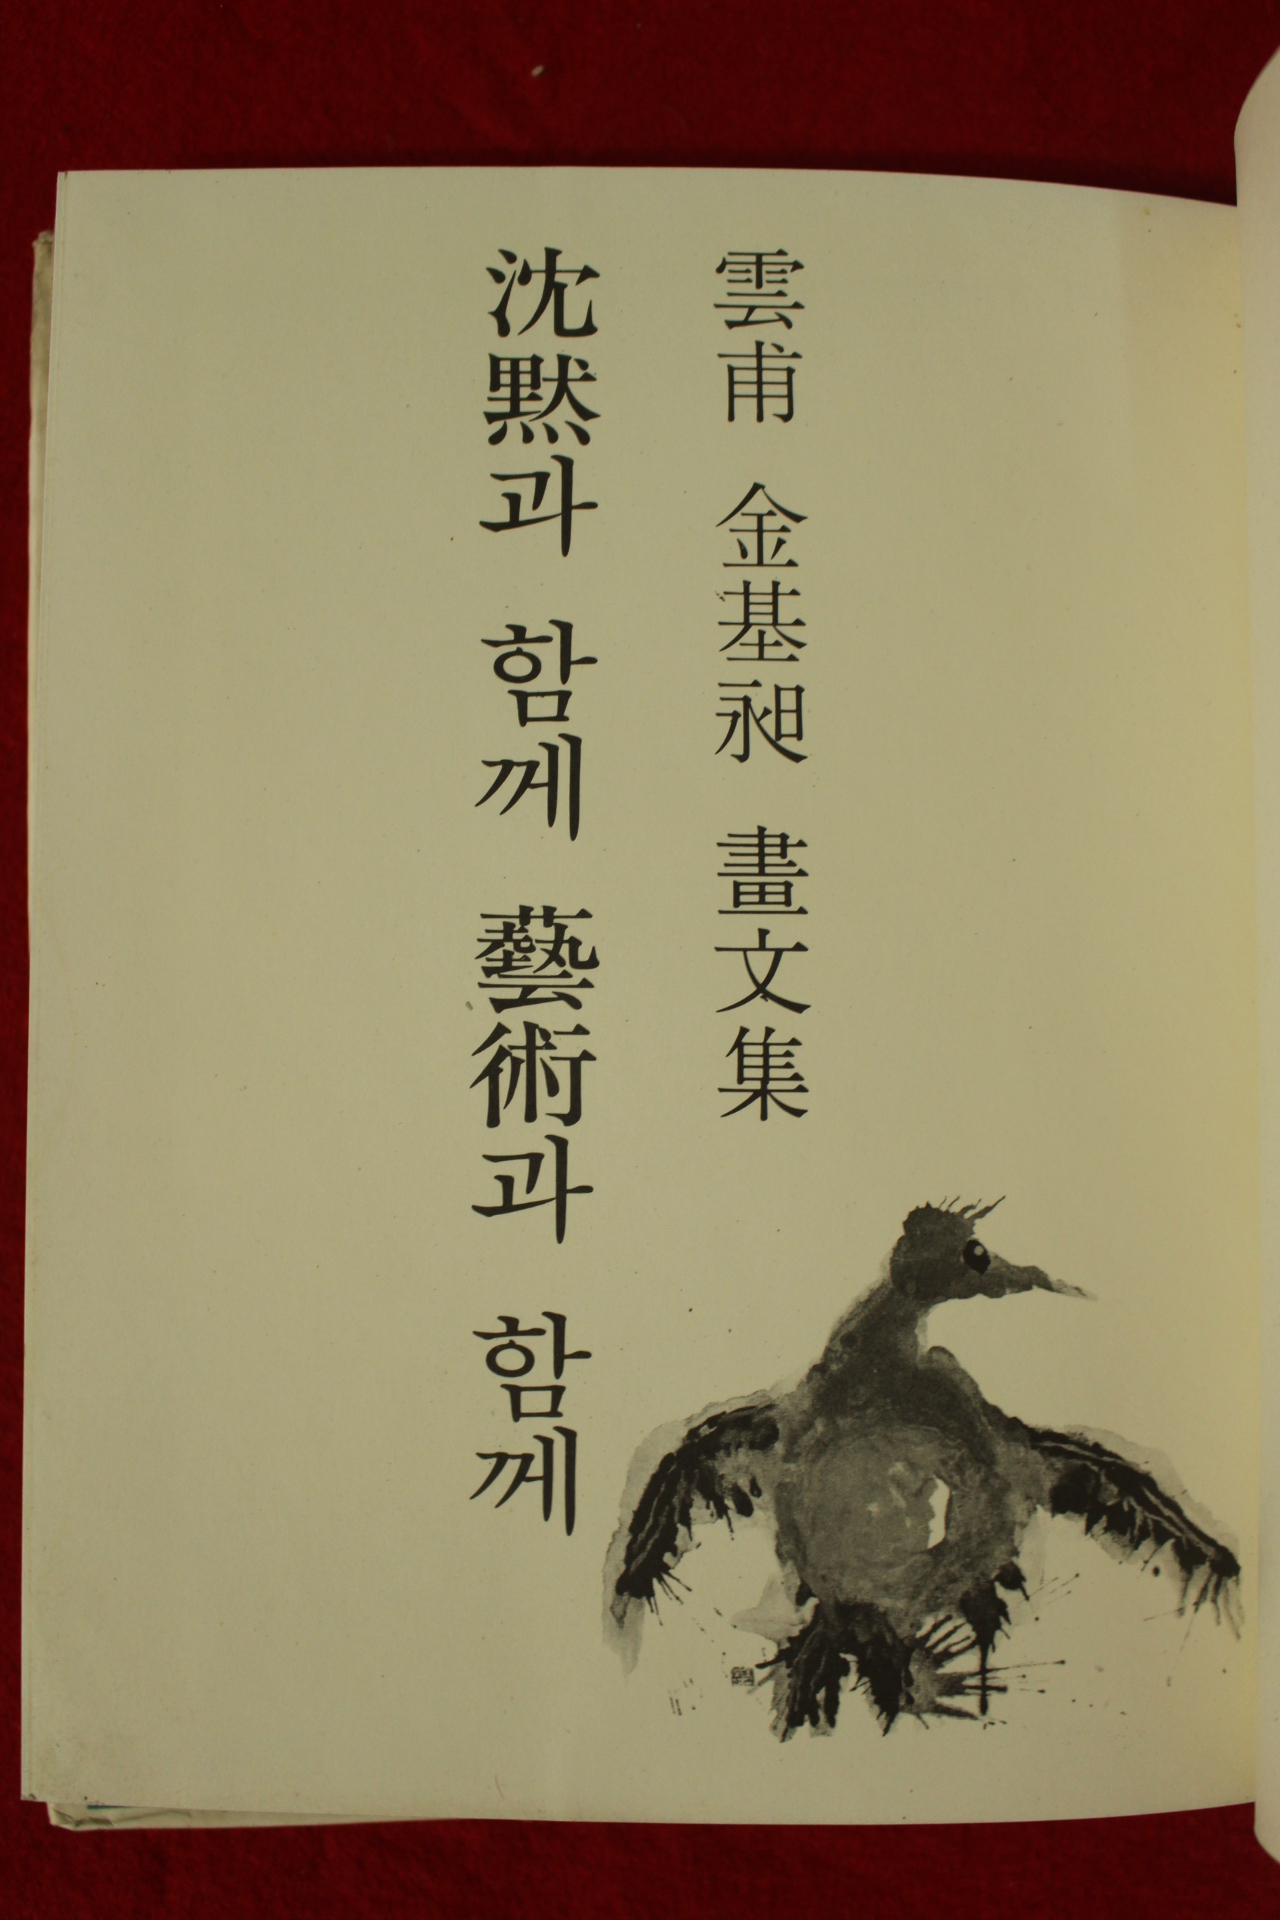 雲甫 金基昶 畫文集
沈黙과 함께 藝術과 함께